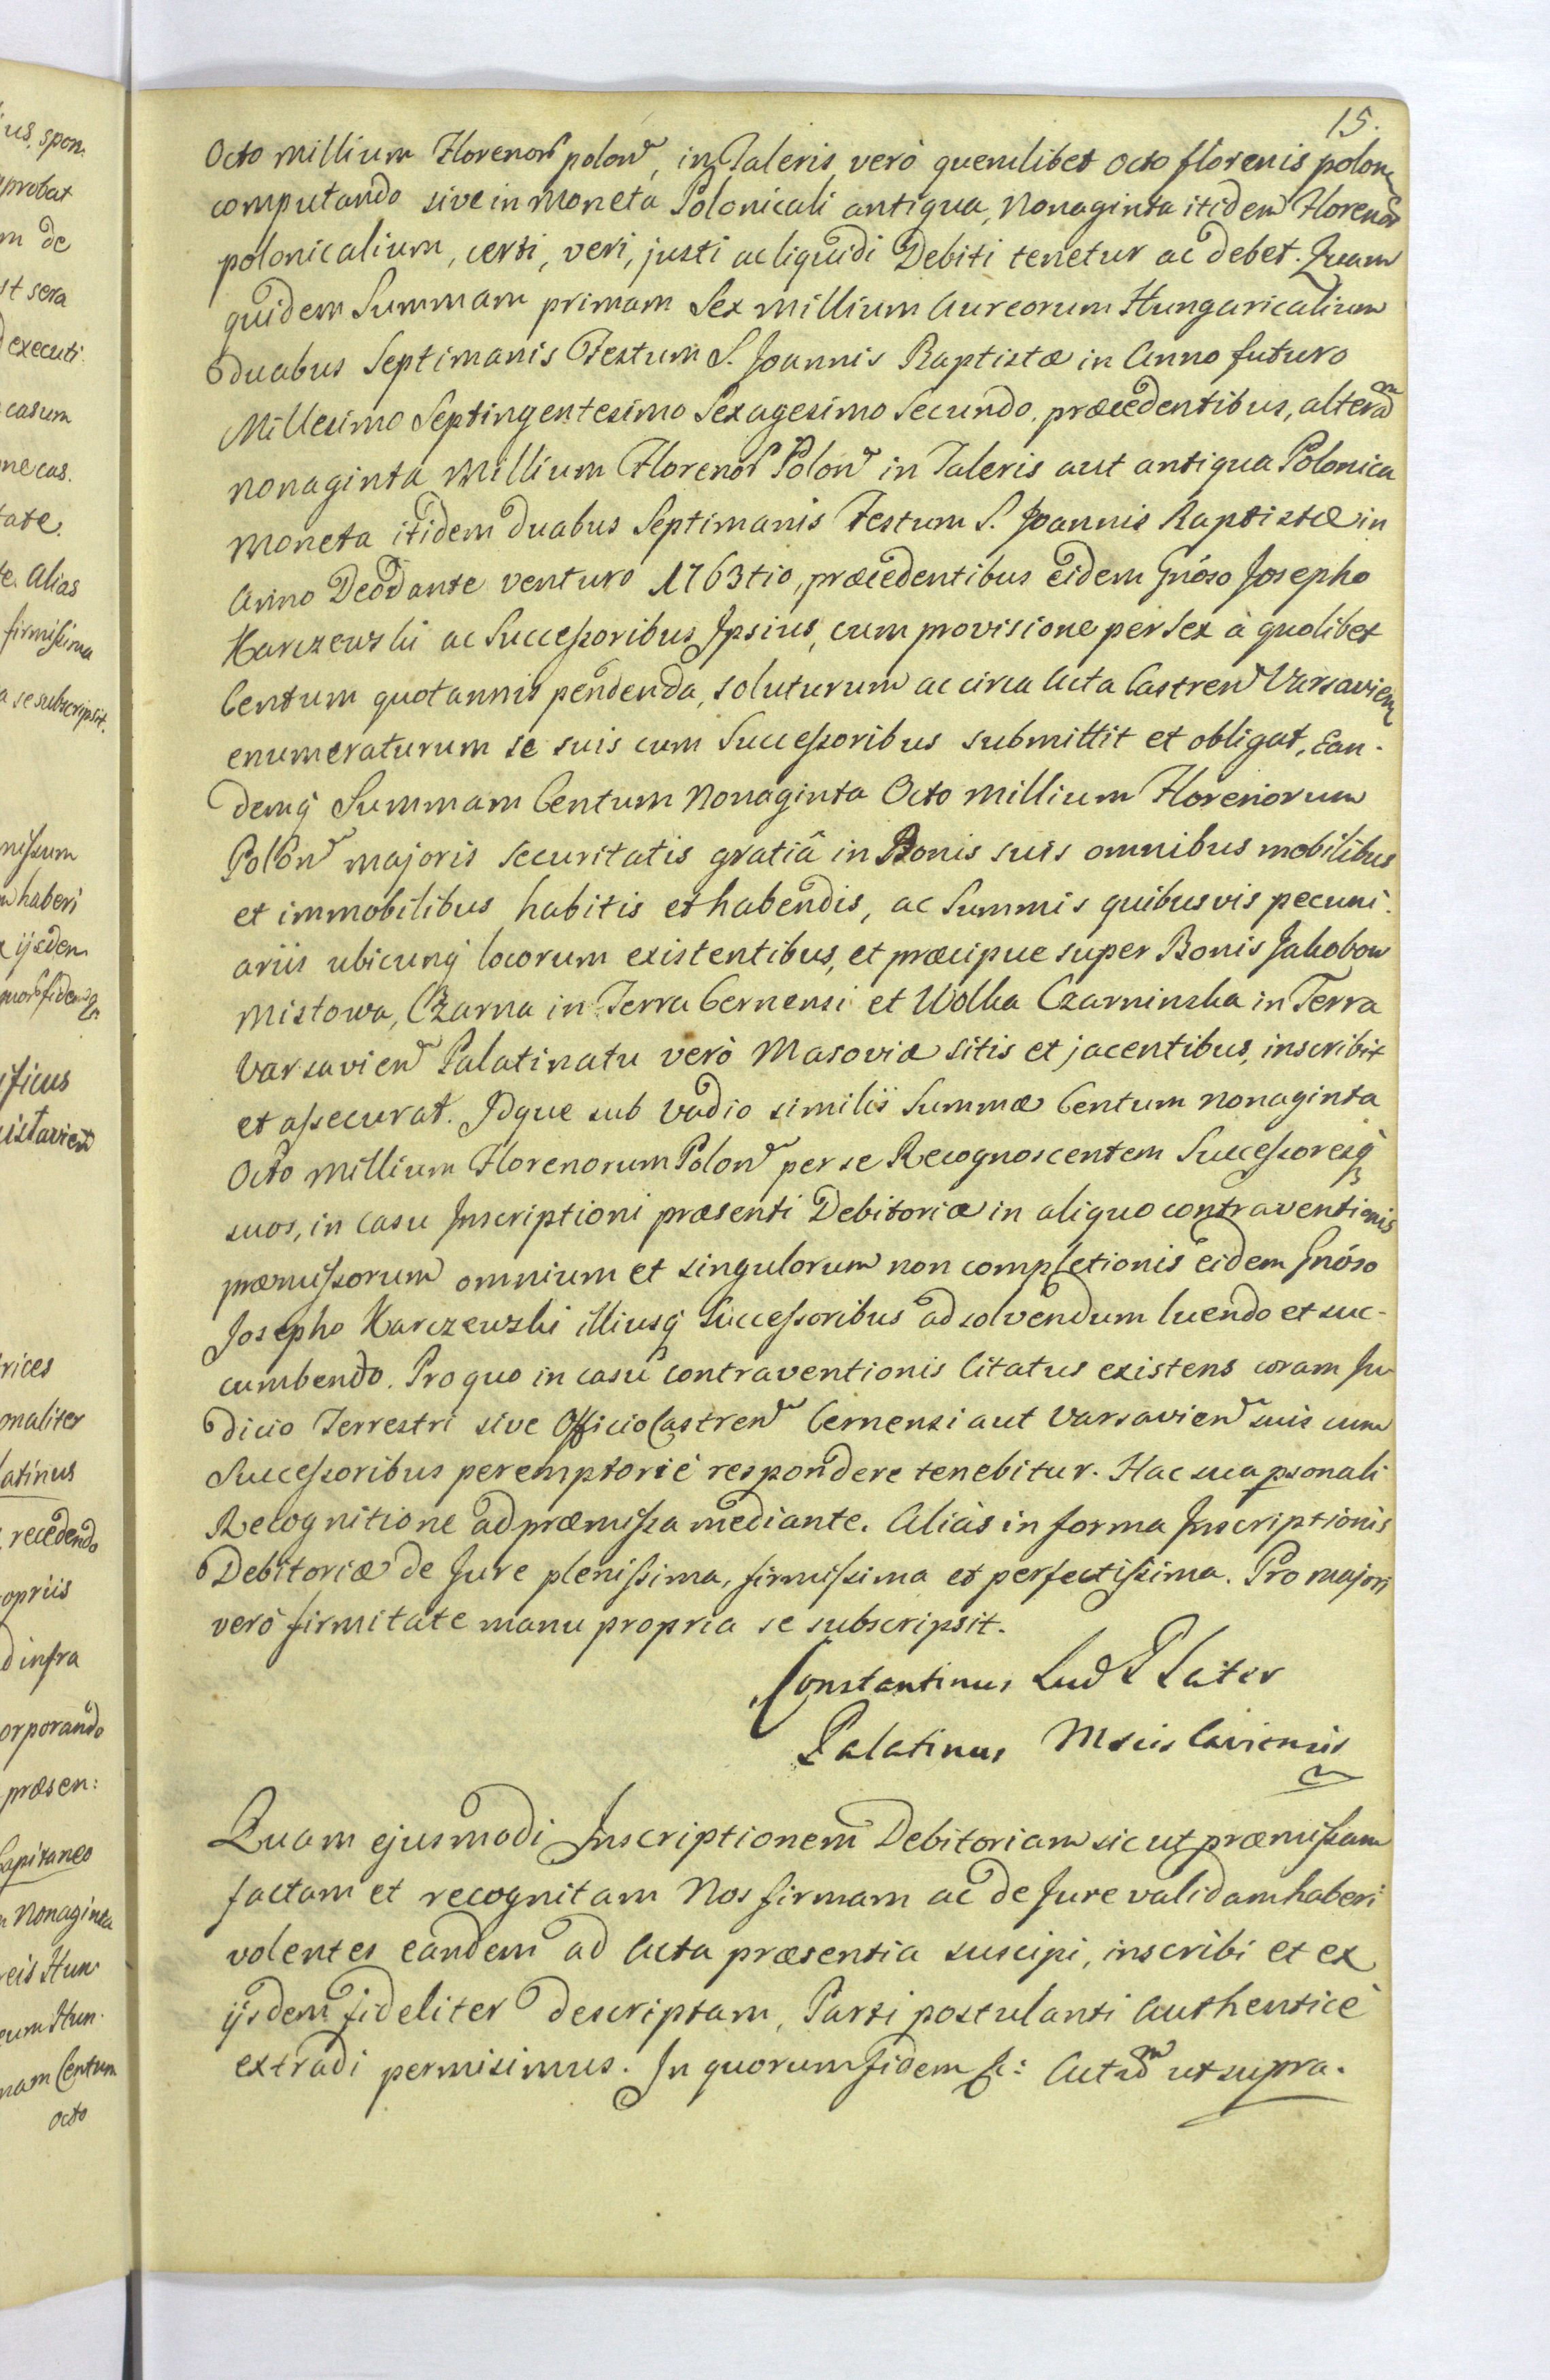 15.
Octo millium Florenor polon, in Taleris, verò quemlibet octo florenis polon
computando sive in moneta Polonicali antiqua, Nonaginta itidem Florenor
polonicalium, certi, veri, justi ac liquidi Debiti tenetur ac debet. Quam
quidem Summam primam Sex millium Aureorum Hungaricalium
duabus Septimanis Festum S. Joannis Baptistæ in Anno futuro
Millesimo Septingentesimo Sexagesimo Secundo, præcedentibus, alteram
nonaginta Millium Florenor Polon in Taleris aut antiqua Polonica
moneta itidem duabus Septimanis Festum S. Joannis Baptistæ in
Anno Deo Dante venturo 1763tio, præcedentibus eidem Gnóso Josepho
Karczewski ac Successoribus Ipsius, cum provisione per Sex à quolibet
Centum quotannis pendenda, soluturum ac circa Acta Castren Varsavien
enumeraturum se suis cum Successoribus submittit et obligat, Ean-
demq Summam Centum Nonaginta Octo millium Florenorum
Polon majoris securitatis gratiâ in Bonis suis omnibus mobilibus
et immobilibus habitis et habendis, ac Summis quibusvis pecuni-
ariis ubicunq locorum existentibus, et præcipue super Bonis Jakobow
Mistowa, Czarna in Terra Cernensi et Wolka Czarninska in Terra
Varsavien Palatinatu verò Masoviæ sitis et jacentibus, inscribit
et assecurat. Idque sub vadio similis Summæ Centum nonaginta
Octo millium Florenorum Polon per se Recognoscentem Successoresq
suos, in casu Inscriptioni præsenti Debitoriæ in aliquo contraventionis
præmissorum omnium et singulorum non completionis eidem Gnóso
Josepho Karczewski illiusq Successoribus ad solvendum luendo et suc-
cumbendo. Pro quo in casu contraventionis Citatus existens coram Ju
dicio Terrestri sive Officio Castren Cernensi aut Varsavien suis cum
Successoribus peremptoriè respondere tenebitur. Hac sua psonali
Recognitione ad præmissa mediante. Aliàs in forma Inscriptionis
Debitoriæ de Jure plenissima, firmissima et perfectissima. Pro majori
verò firmitate manu propria se subscripsit.
Constantinus Lud Plater
Palatinus Mscislaviensis
Quam ejusmodi Inscriptionem Debitoriam sicut præmissam
factam et recognitam Nos firmam ac de Jure validam haberi
volentes eandem ad Acta præsentia suscipi, inscribi et ex
ijsdem fideliter descriptam, Parti postulanti Authenticè
extradi permisimus. In quorum fidem &c: Actum ut supra.